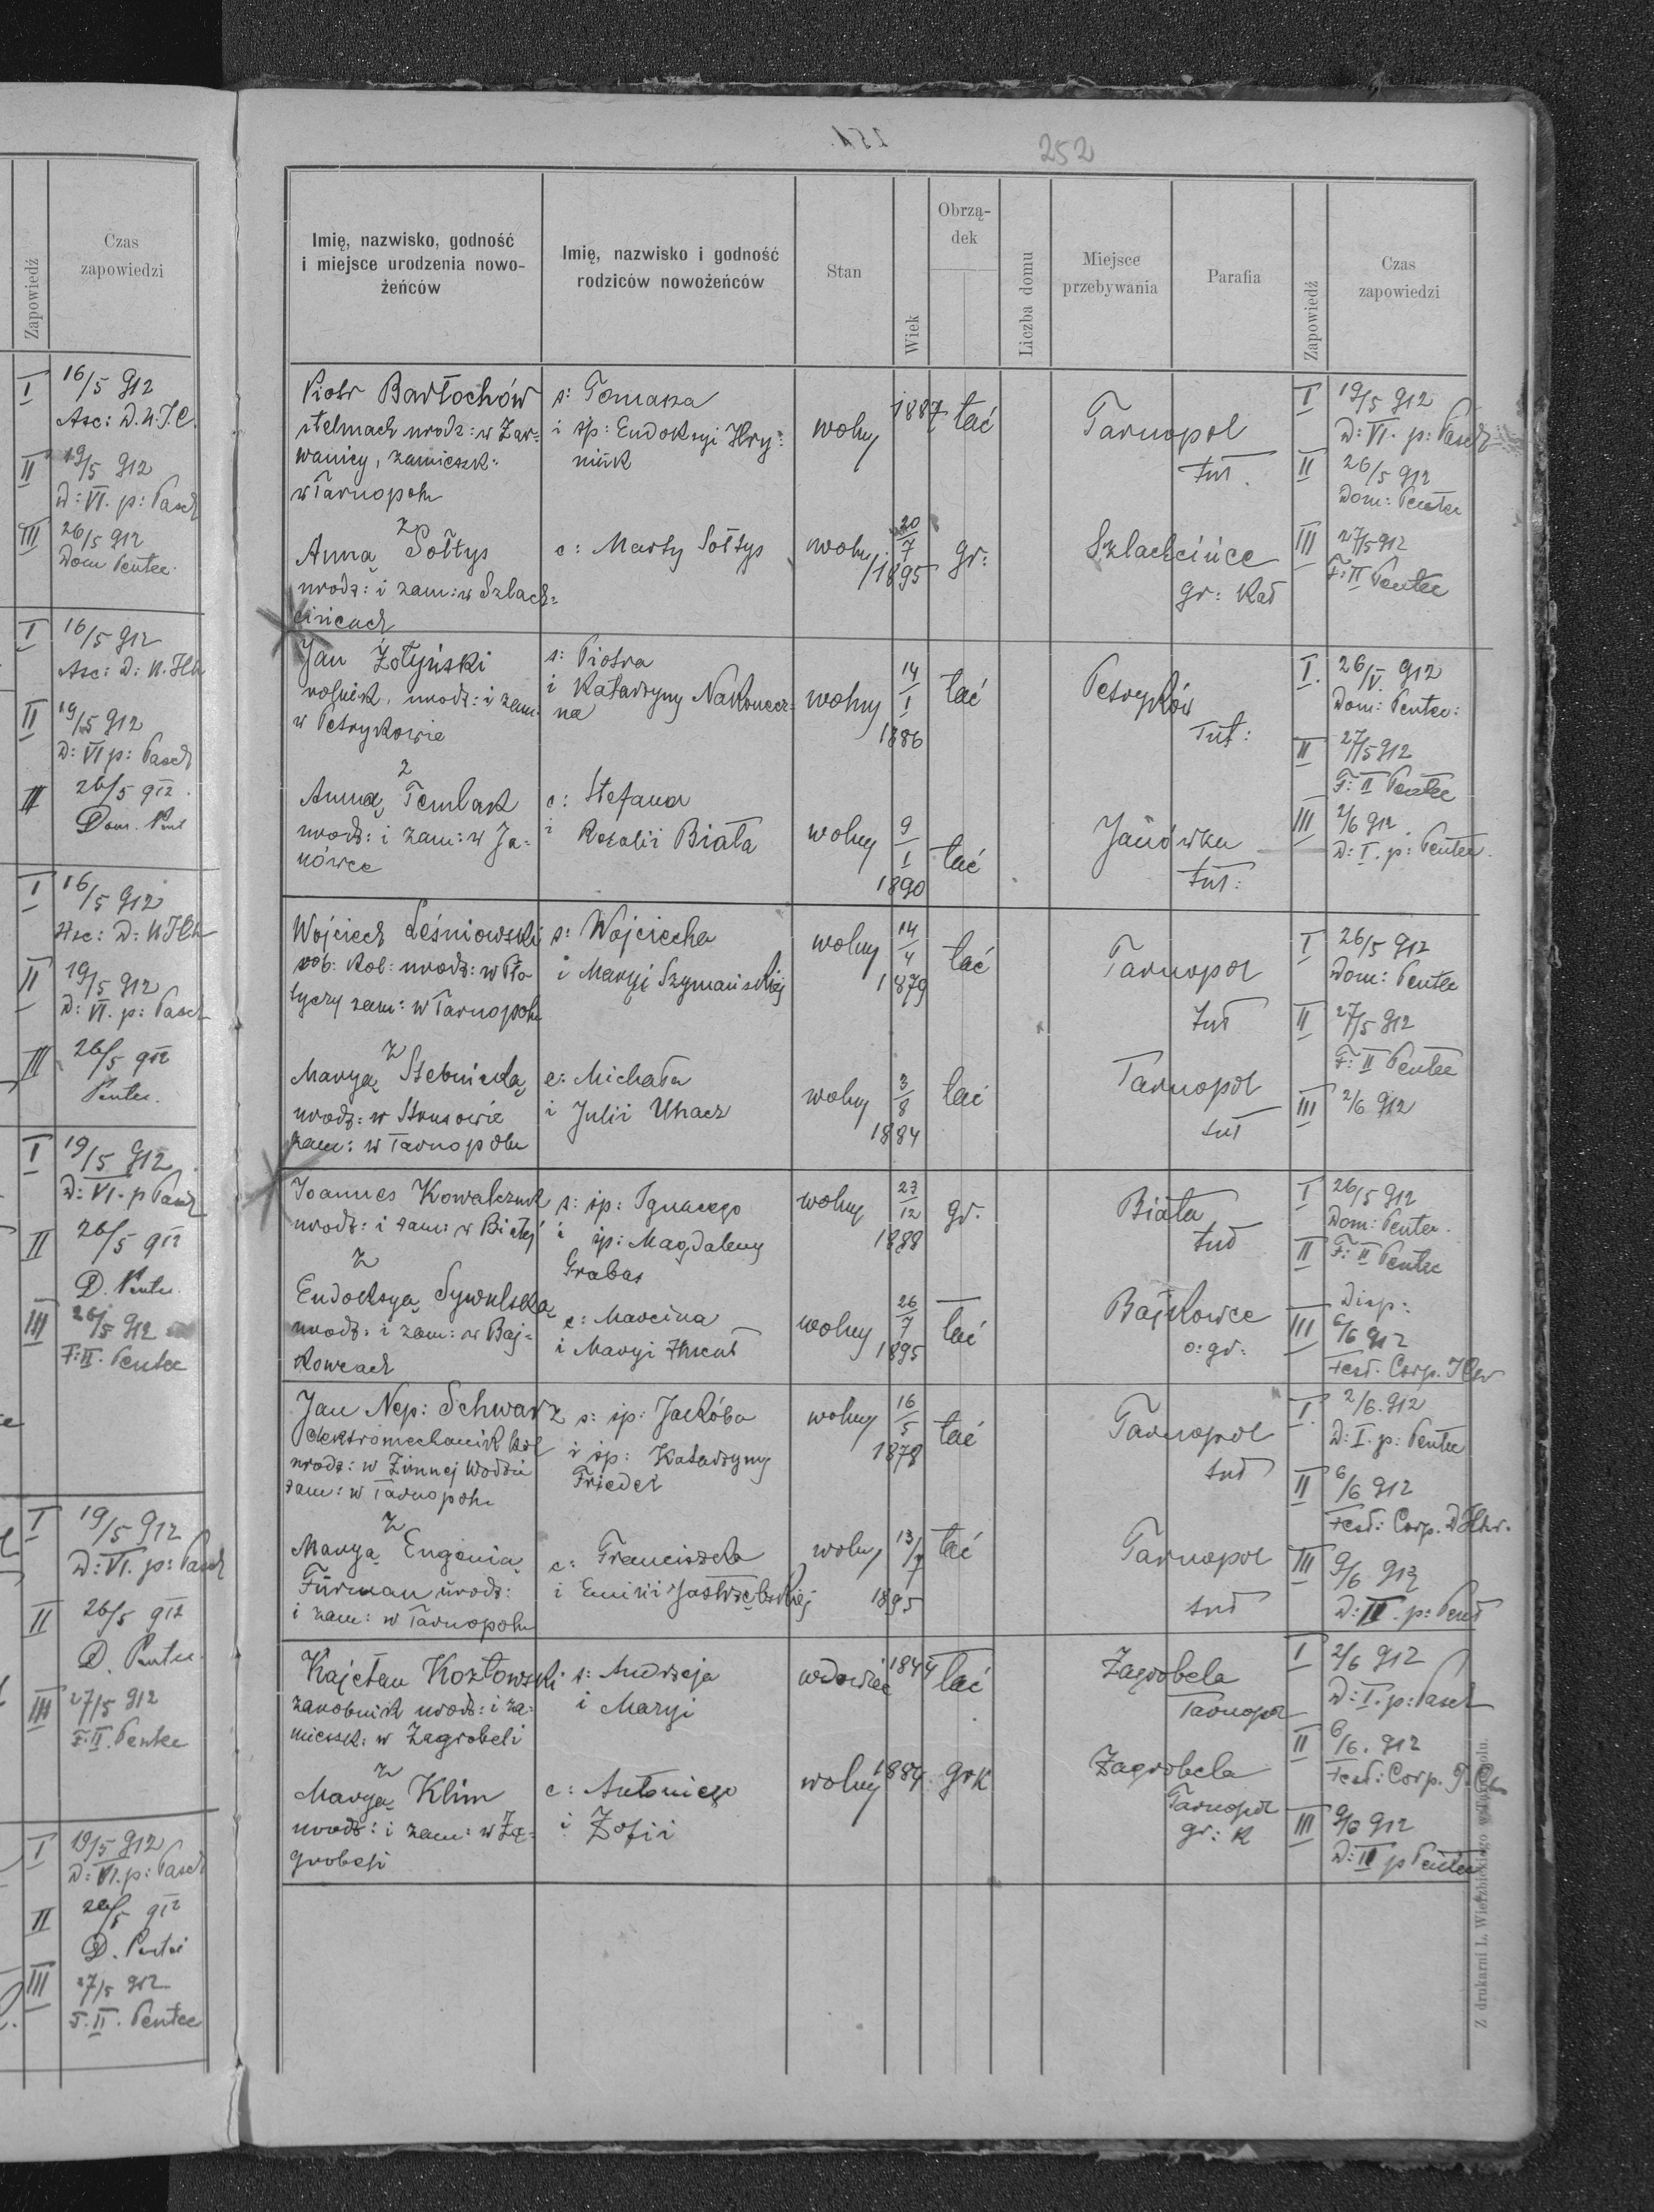 Zapowiedź
Czas
zapowiedzi
I
16/5 912
Asc: D.N.J.C.
II
19/5 912
D: VI. p: Pasch
III
26/5 912
Dom Pentec.
I
16/5 912
Asc: D: N.
II
19/5 912
D: VI p: Pasch
III
26/5 912
Dom. Pent
I
16/5 912
Asc: D: N
II
19/5 912
D: VI. p: Pasch
III
26/5 912
Pentec.
I
19/5 912
D: VI. p Pasch
II
26/5 912
D. Pentec.
III
26/5 912
F: II. Pentec
I
19/5 912
D: VI. p: Pasch
II
26/5 912
D. Pentec.
III
27/5 912
F. II. Pentec
I
19/5 912
D: VI. p: Pasch
II
26/5 912
D. Pentec
III
27/5 912
F. II. Pentec
251.
252
Imię, nazwisko, godność
i miejsce urodzenia nowo-
żeńców
Imię, nazwisko i godność
rodziców nowożeńców
Stan
Wiek
Obrzą-
dek
Liczba domu
Miejsce
przebywania
Parafia
Zapowiedź
Czas
zapowiedzi
Piotr Bartochów s: Tomasza wolny 1887 łać Tarnopol I 19/5 912
stelmach urodz: w Zar= i śp: Eudoksyi Hry= D: VI. p: Pasch
wanicy, zamieszk: niuk tut. II 26/5 912
w Tarnopolu Dom: Pentec
z
Anną Sołtys c: Marty Sołtys wolny 20/7 1895 gr: Szlachcińce III 27/5 912
urodz: i zam: w Szlach= gr: Kat F: II Pentec
cińcach
Jan Żołyński s: Piotra wolny 14/I 1886 łać Petryków I. 26/V. 912
rolnik, urodz: i zam: i Katarzyny Nakonecz= Tut: Dom: Pentec:
w Petrykowie na II 27/5 912
z F: II Pentec
Anną Temlak c: Stefana wolny 9/I 1890 łać Janówka III 2/6 912
urodz: i zam: w Ja= i Rozalii Biała tut: D: I. p: Pentec.
nówce
Wojciech Leśniowski s: Wojciecha wolny 14/4 1879 łać Tarnopol I 26/5 912
rob: kol: urodz: w Pło i Maryi Szymańskiej Dom: Pentec
tyczy zam: w Tarnopolu tut II 27/5 912
z F: II Pentec
Maryą Stebnicką c: Michała wolny 3/8 1884 łać Tarnopol III 2/6 912
urodz: w Strusowie i Julii Uhacz tut
zam: w Tarnopolu
Joannes Kowalczuk s: śp: Ignacego wolny 27/12 1888 gr. Biała I 26/5 912
urodz: i zam: w Białej i śp: Magdaleny tut Dom: Pentec.
z Grabas II F: II Pentec
Eudoksyą Sywulską c: Marcina wolny 26/7 1895 łać Bajkowce Disp:
urodz: i zam: w Baj= i Maryi o: gr: III 6/6 912
kowcach Fest. Corp.
Jan Nep: Schwarz s: śp: Jakóba wolny 16/5 1878 łać Tarnopol I. 2/6. 912
elektromechanik kol i śp: Katarzyny D: I. p: Pentec
urodz: w Zimnej Wodzie Friedel tut II 6/6 912
zam: w Tarnopolu Fest: Corp.
z
Maryą Eugenią c: Franciszka wolny 13/7 1895 łać Tarnopol III 9/6 912
Fürman urodz: i Emilii Jastrzębskiej tut D: II. p: Pent
i zam: w Tarnopolu
Kajetan Kozłowski s: Andrzeja wdowiec 1844 łać Zagrobela I 2/6 912
zarobnik urodz: i za= i Maryi Tarnopol D: I. p: Pasch
mieszk: w Zagrobeli II 6/6. 912
z Fest: Corp.
Maryą Klim c: Antoniego wolny 1884 grk Zagrobela Tarnopol III 9/6 912
urodz: i zam: w Za= i Zofii gr: K D: II p Pentec
grobeli
Z drukarni L. Wierzbickiego w Tarnopolu.